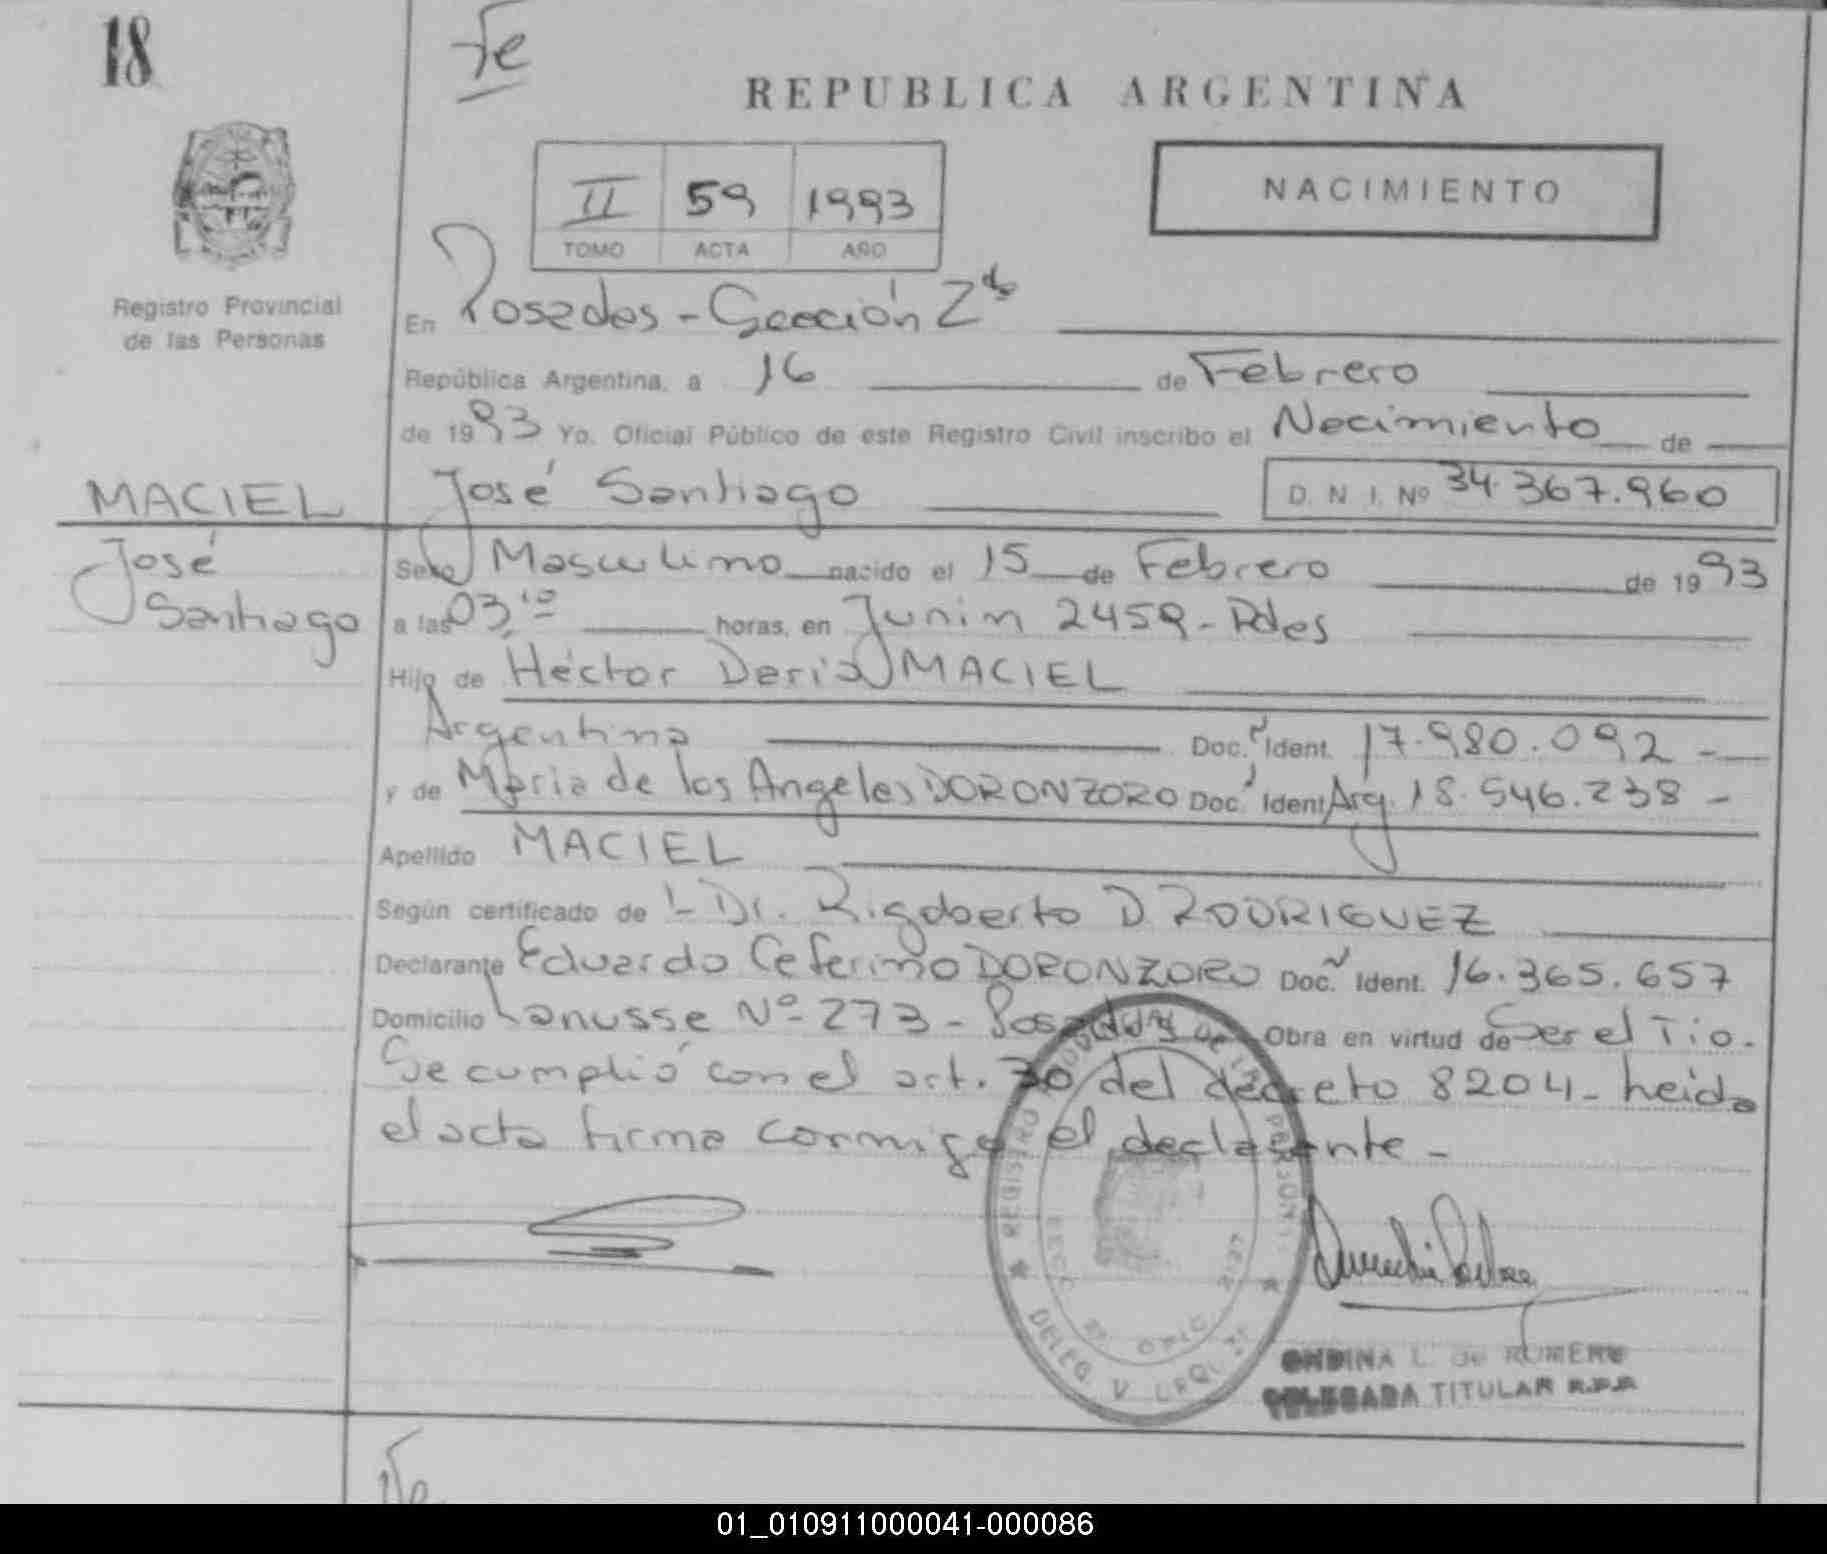 18
Te
REPUBLICA ARGENTINA
II 59 1993
TOMO ACTA AÑO
NACIMIENTO
Registro Provincial
de las Personas
En Posadas - Sección 2ª
República Argentina, a 16 de Febrero
de 1993 Yo, Oficial Público de este Registro Civil inscribo el Nacimiento de
MACIEL José Santiago D. N. I. Nº 34.367.960
José
Santiago
Sexo Masculino nacido el 15 de Febrero de 1993
a las 03,10 horas, en Junín 2459 - Pdas
Hijo de Héctor Dario MACIEL
Argentina Doc. Ident. 17.980.092 -
y de María de los Angeles DORONZORO Doc. Ident. Arg. 18.546.238 -
Apellido MACIEL
Según certificado de Dr. Rigoberto D. RODRIGUEZ
Declarante Eduardo Ceferino DORONZORO Doc. Ident. 16.365.657
Domicilio Lanusse Nº 273 - Posadas Obra en virtud de Ser el Tío.
Se cumplió con el art. 30 del decreto 8204 - Leida
el acta firma conmigo el declarante -
REGISTRO DE LAS PERSONAS
DELEG
ONDINA L. de ROMERO
DELEGADA TITULAR R.P.P.
Te
01_010911000041-000086